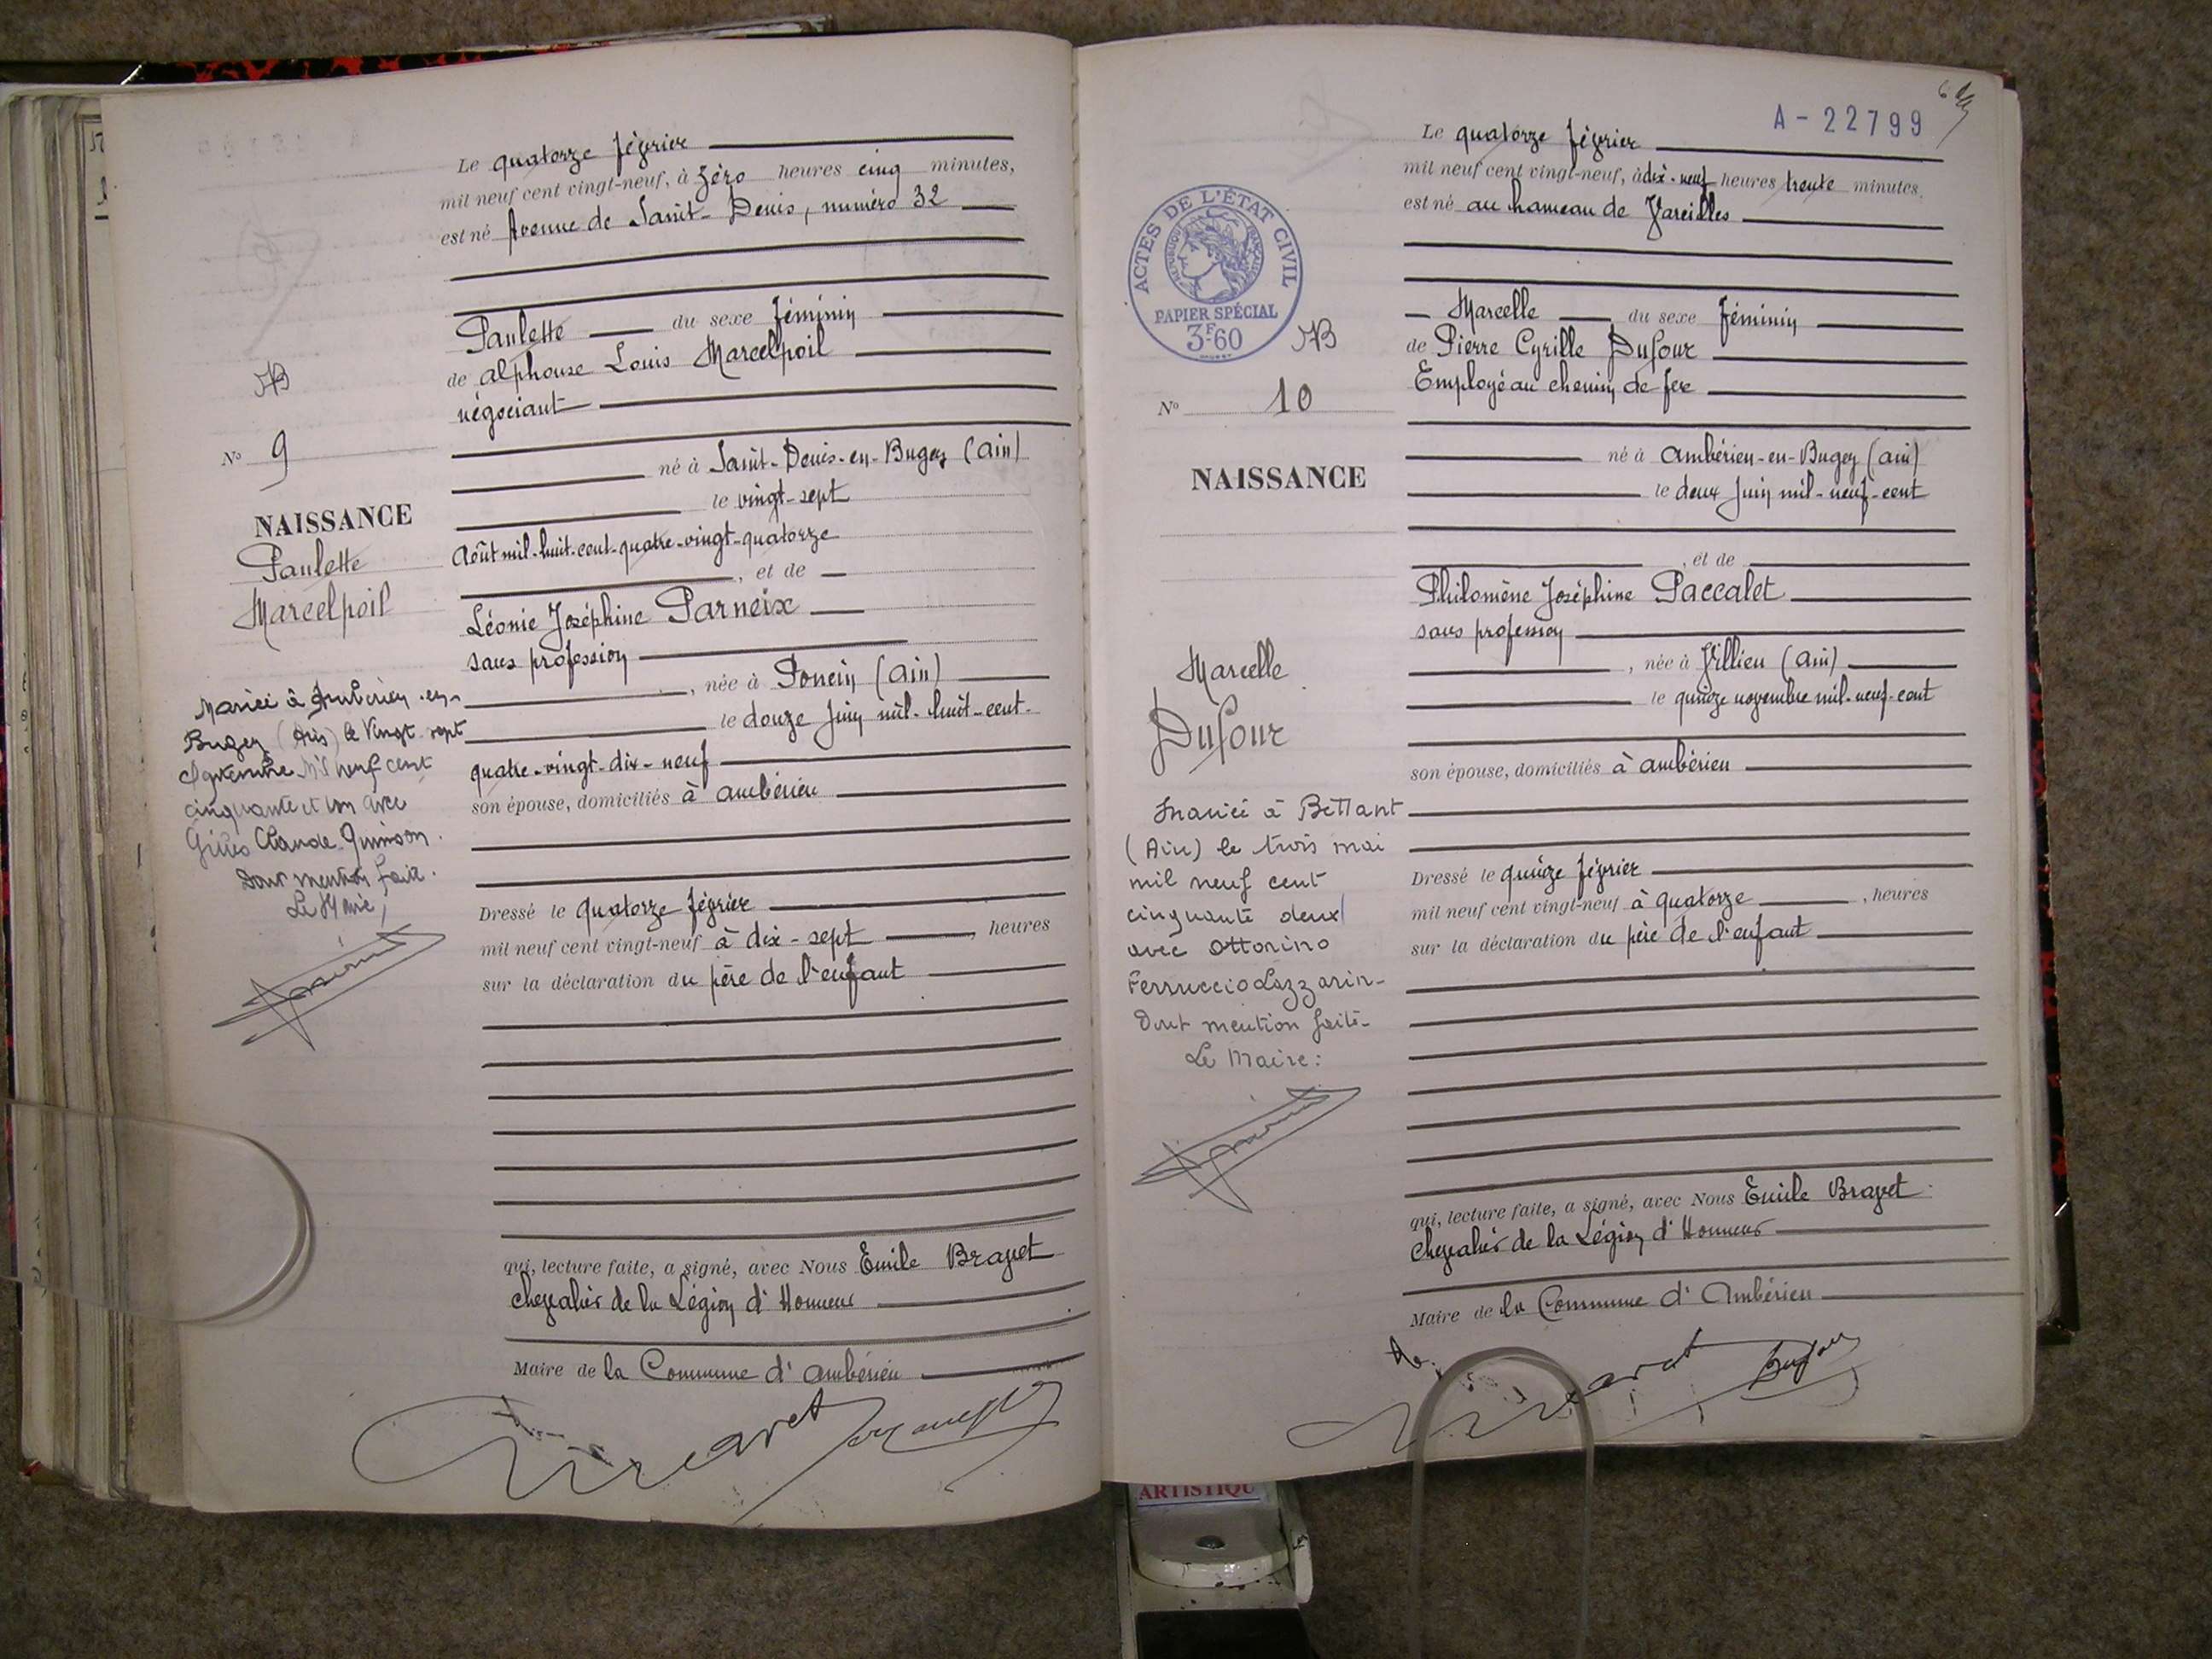 Le quatorze février
mil neuf cent vingt-neuf, à zéro heures cinq minutes,
est né Avenue de Saint-Denis, numéro 32
Paulette du sexe féminin
de Alphonse Louis Marcelpoil
négociant
né à Saint-Denis-en-Bugey (Ain)
le vingt-sept
Août mil-huit-cent-quatre-vingt-quatorze
, et de
Léonie Joséphine Parneix
sans profession
, née à Poncin (Ain)
le douze Juin mil-huit-cent-
quatre-vingt-dix-neuf
son épouse, domiciliés à Ambérieu
Dressé le quatorze février
mil neuf cent vingt-neuf à dix-sept , heures
sur la déclaration du père de l'enfant
qui, lecture faite, a signé, avec Nous Emile Bravet
Chevalier de la Légion d'Honneur
Maire de la Commune d'Ambérieu
No 9
NAISSANCE
Paulette
Marcelpoil
Mariée à Ambérieu-en-
Bugey (Ain) le Vingt-sept
mil neuf cent
cinquante et un avec
Claude Quinson.
Dont mention faite.
Le Maire,
A-22799
Le quatorze février
mil neuf cent vingt-neuf, à dix-neuf heures trente minutes,
est né au hameau de Vareilles
Marcelle du sexe féminin
de Pierre Cyrille Dufour
Employé au chemin de fer
né à Ambérieu-en-Bugey (Ain)
le deux Juin mil-neuf-cent
, et de
Philomène Joséphine Paccalet
sans profession
, née à Villieu (Ain)
le quinze novembre mil-neuf-cent
son épouse, domiciliés à Ambérieu
Dressé le quinze février
mil neuf cent vingt-neuf à quatorze , heures
sur la déclaration du père de l'enfant
qui, lecture faite, a signé, avec Nous Emile Bravet
Chevalier de la Légion d'Honneur
Maire de la Commune d'Ambérieu
Dufour
ACTES DE L'ÉTAT CIVIL
RÉPUBLIQUE FRANÇAISE
PAPIER SPÉCIAL
3F60
No 10
NAISSANCE
Marcelle
Dufour
Mariée à Bettant
(Ain) le trois mai
mil neuf cent
cinquante deux
avec Ottorino
Ferruccio Lazzarin-
Dont mention faite-
Le Maire:
ARTISTIQU